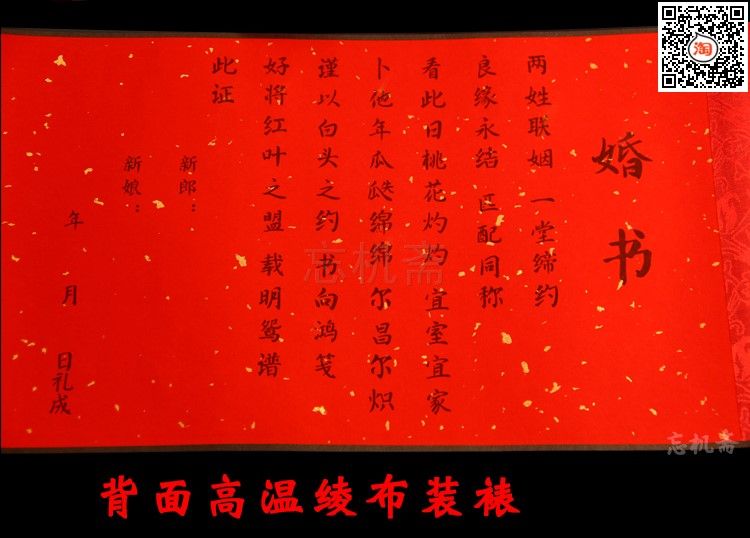 婚书
两姓联姻 一堂缔约
良缘永结 匹配同称
看此日桃花灼灼 宜室宜家
卜他年瓜瓞绵绵 尔昌尔炽
谨以白头之约 书向鸿笺
好将红叶之盟 载明鸳谱
此证
新郎：
新娘：
年 月 日礼成
忘机斋
忘机斋
淘
背面高温绫布装裱